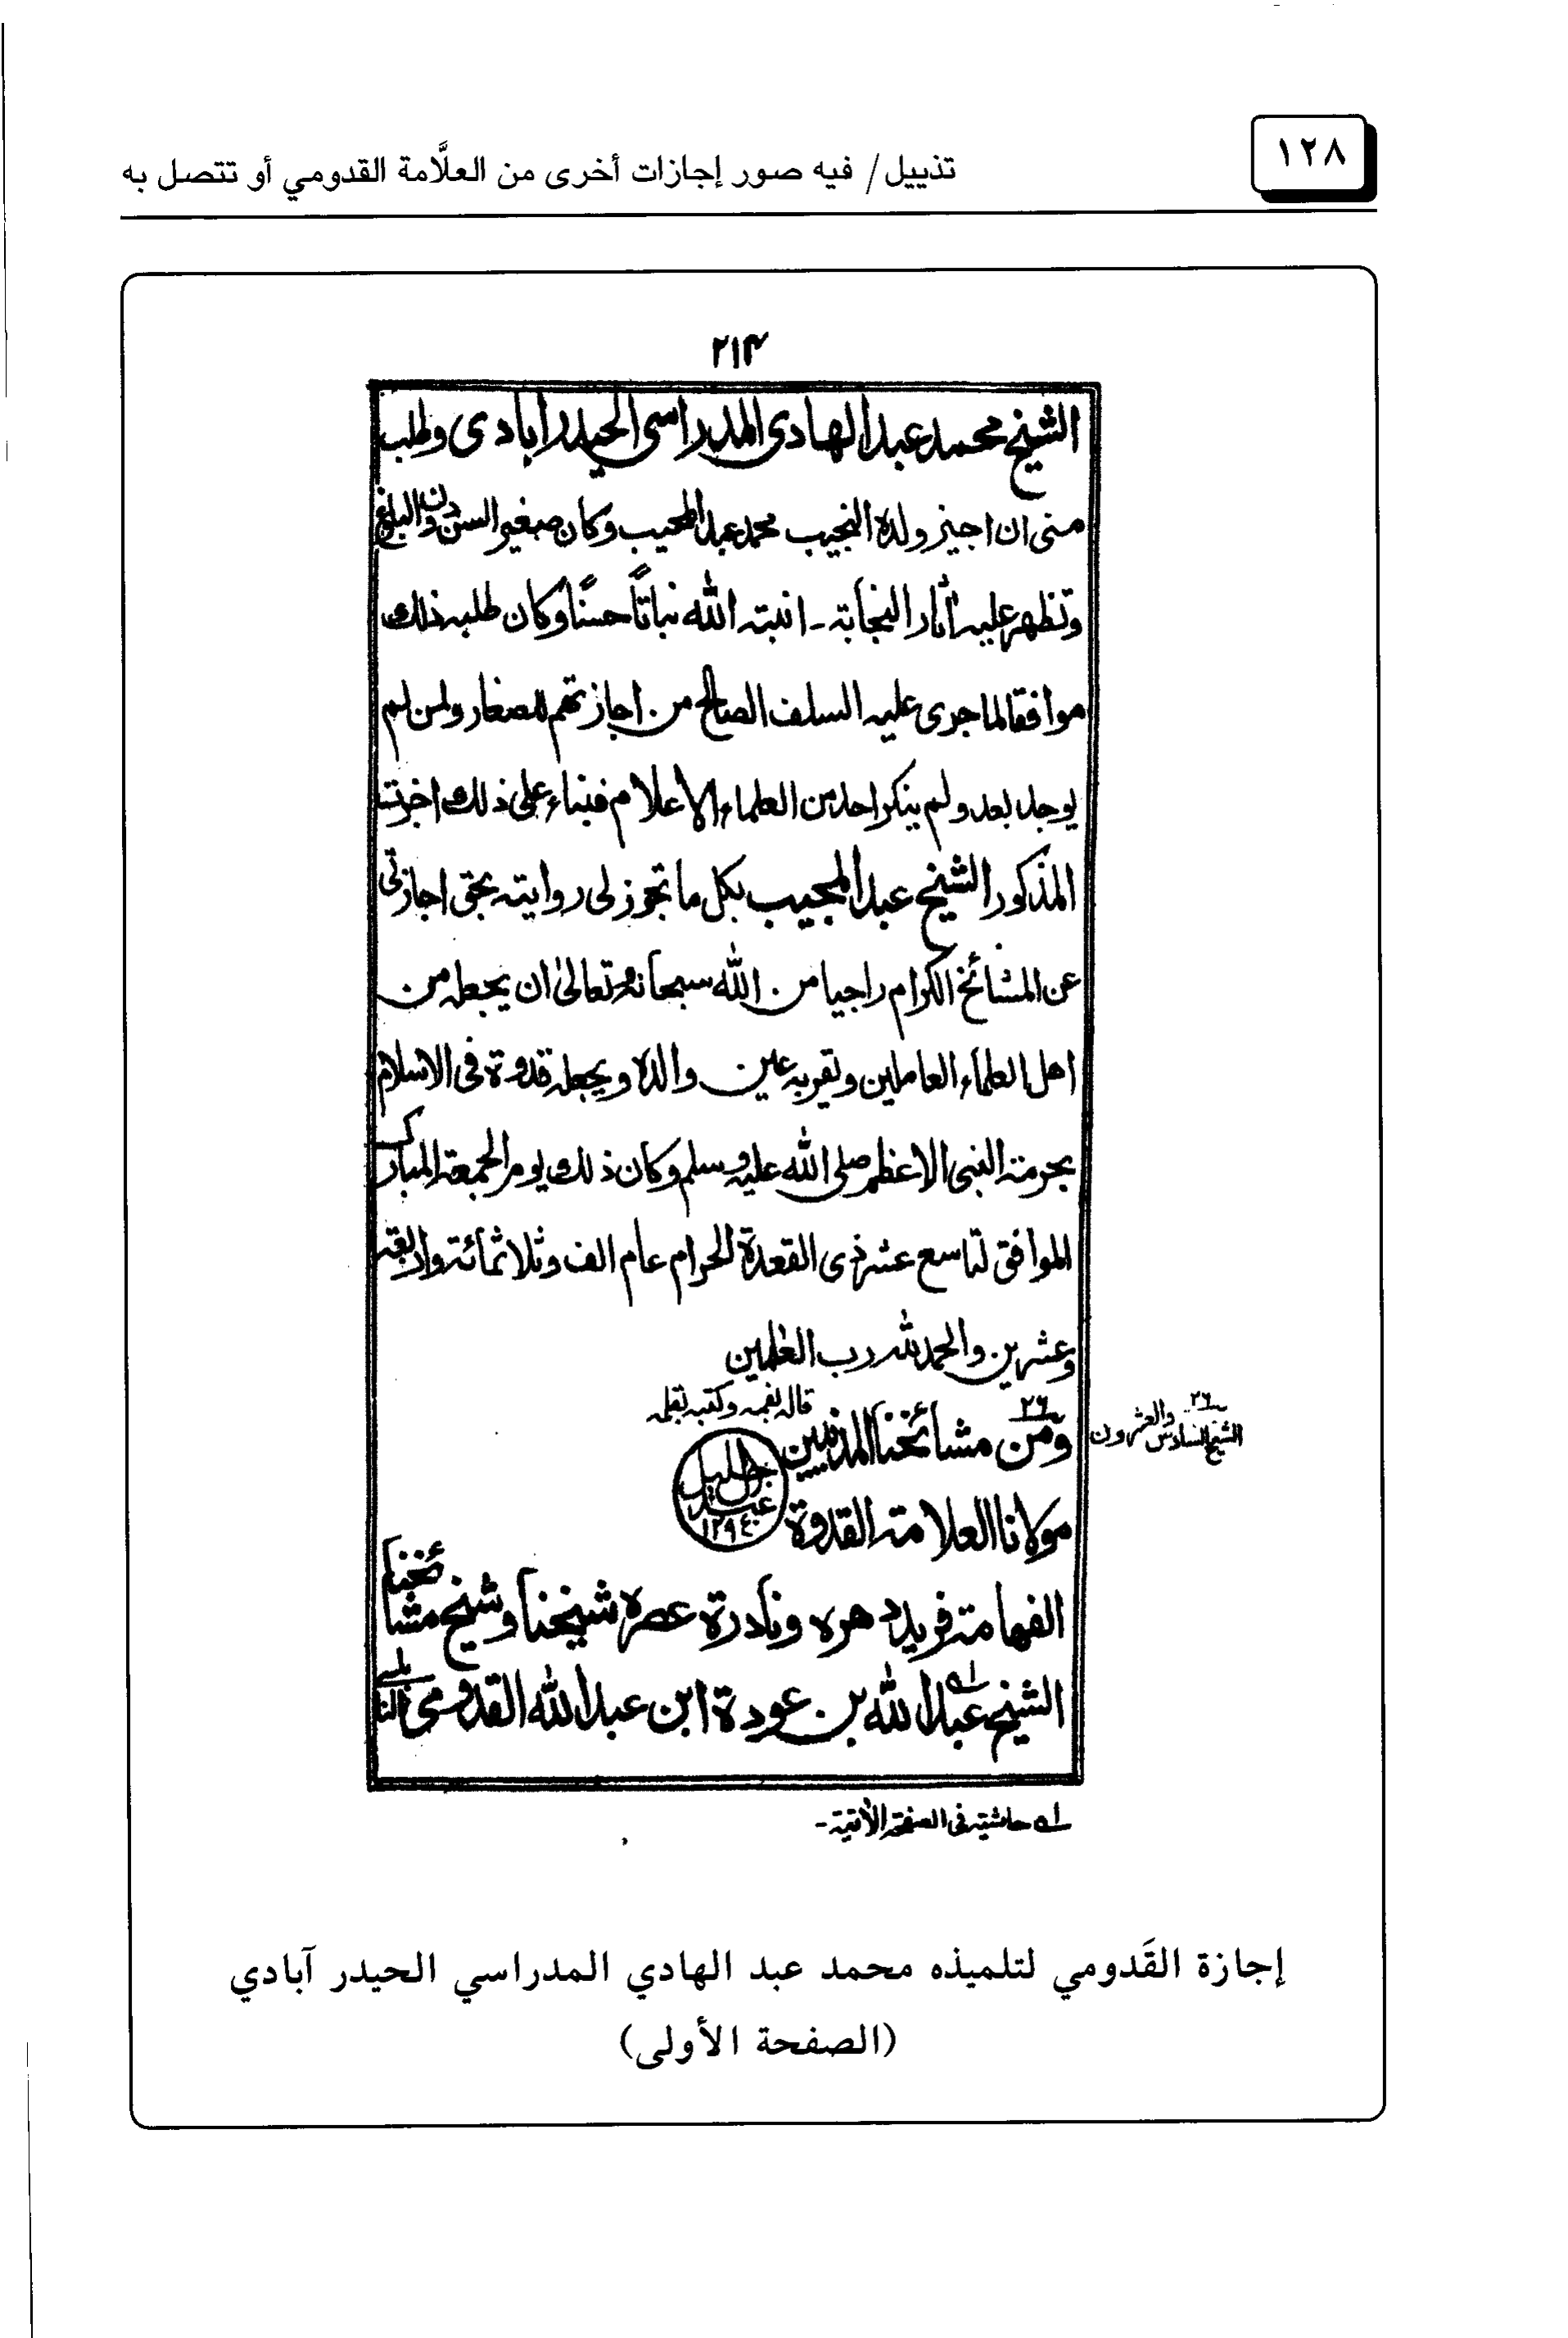 ١٢٨
تذييل/ فيه صور إجازات أخرى من العلَّامة القدومي أو تتصل به
٢١٣
الشيخ محمد عبد الهادى المدراسى الحيدرابادى وطلب
منى ان اجيز ولده النجيب محمد عبد المجيب وكان صغير السن دون البلوغ
وتظهر عليه آثار النجابة - انبته الله نباتاً حسناً وكان طلبه ذلك
موافقا لما جرى عليه السلف الصالح من اجازتهم للصغار ولمن لم
يوجد بعد ولم ينكر احد من العلماء الاعلام فبناء على ذلك اجزت
المذكور الشيخ عبد المجيب بكل ما تجوز لى روايته بحق اجازتى
عن المشائخ الكرام راجيا من الله سبحانه وتعالى ان يجعله من
اهل العلماء العاملين وتقر به عين والده ويجعله قدوة فى الاسلام
بحرمة النبى الاعظم صلى الله عليه وسلم وكان ذلك يوم الجمعة المبارك
الموافق لتاسع عشر ذى القعدة الحرام عام الف وثلاثمائة واربعة
وعشرين والحمد لله رب العلمين
قاله بفمه وكتبه بقلمه
٢٦
ومن مشائخنا المدنيين
٢٦ الشيخ السادس والعشرون
عبد الجليل ١٢٩٤
مولانا العلامة القدوة
الفهامة فريد دهره ونادرة عصره شيخنا وشيخ مشائخنا
الشيخ عبد الله بن عودة ابن عبد الله القدومى النابلسى
له حاشية فى الصفحة الآتية -
إجازة القَدومي لتلميذه محمد عبد الهادي المدراسي الحيدر آبادي
(الصفحة الأولى)